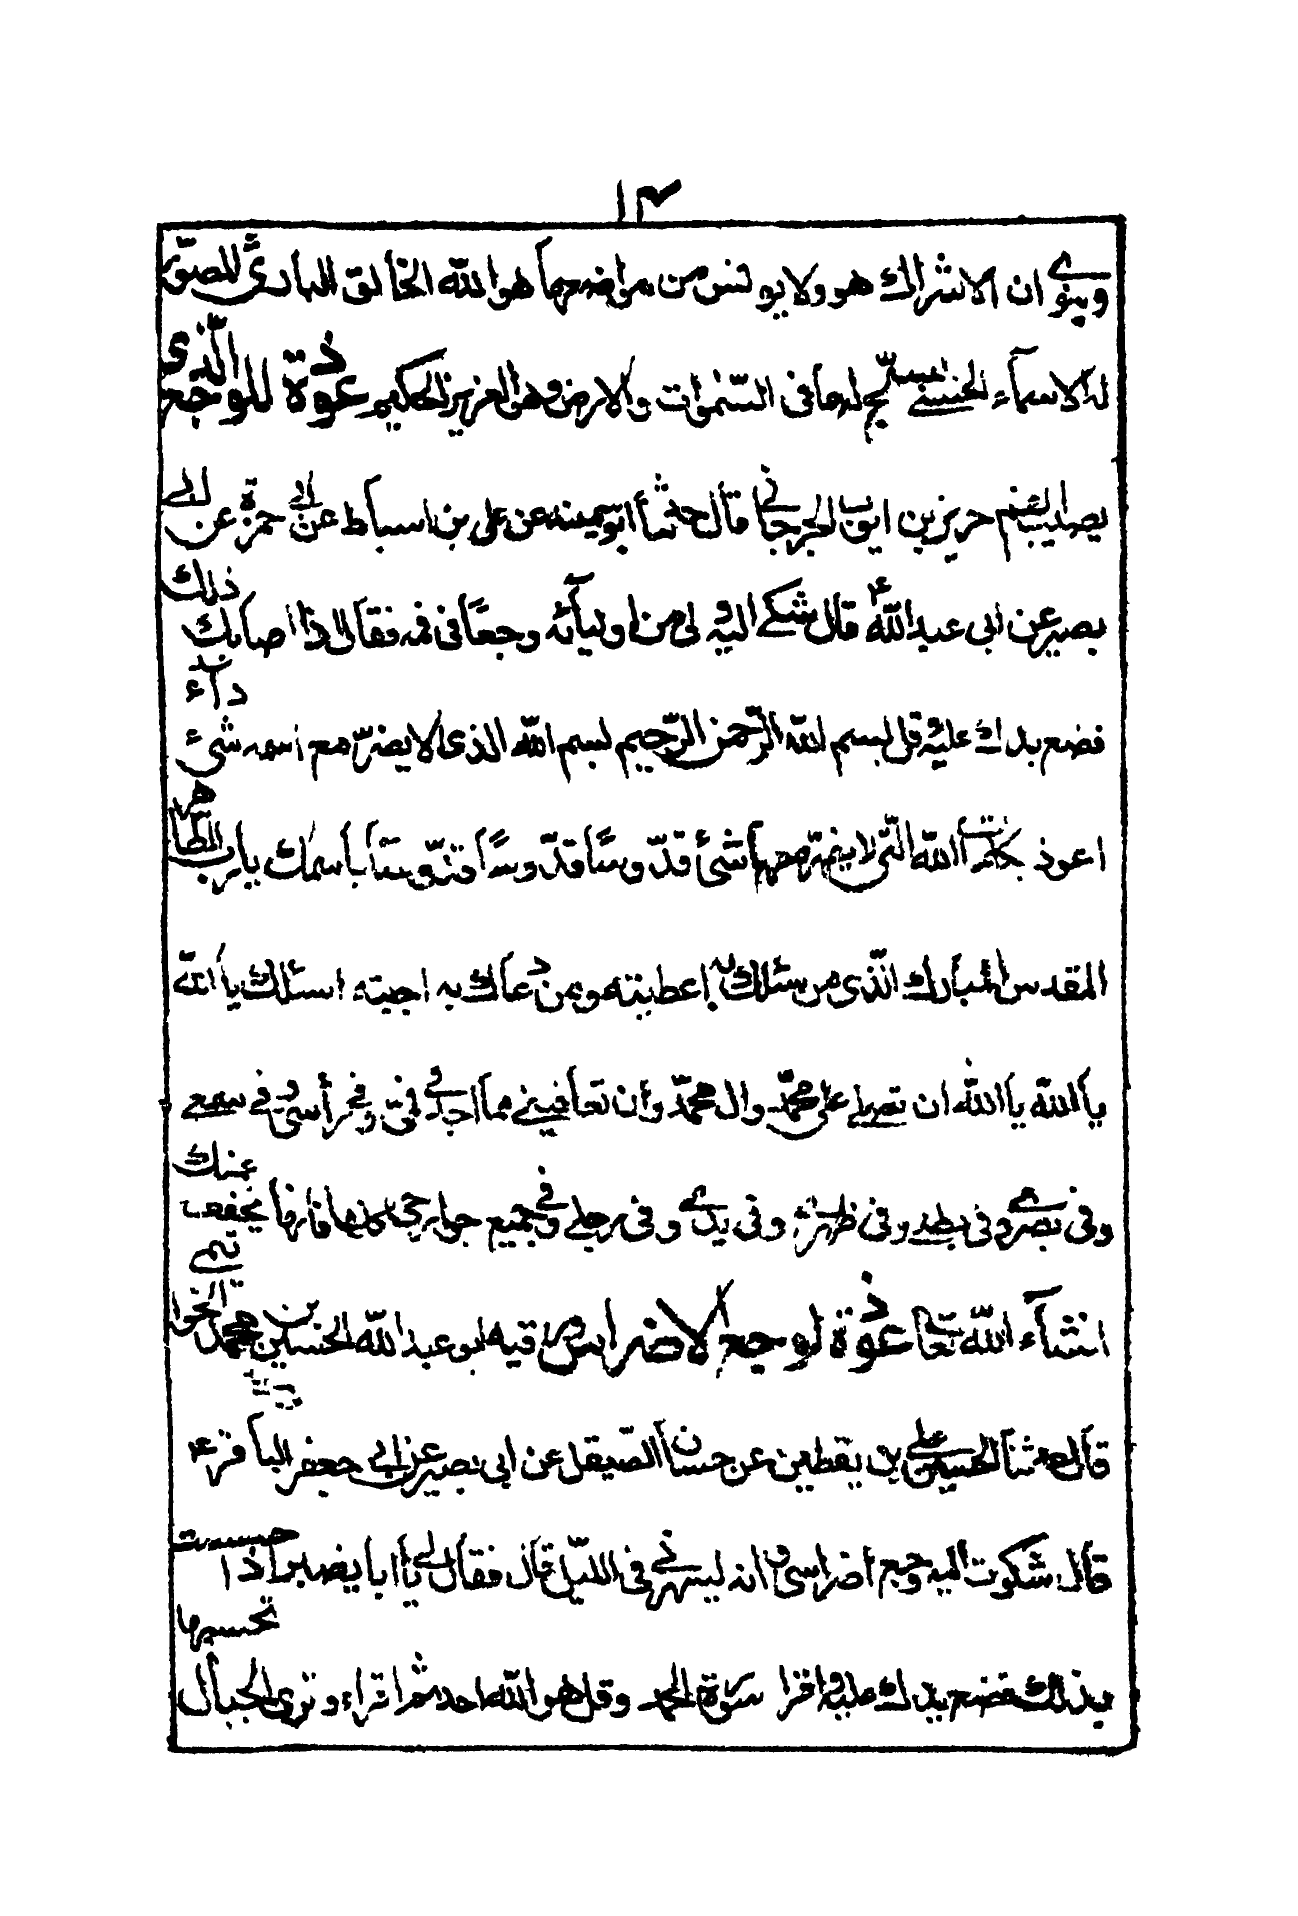 ١٣
وينوى ان الاشراك هو ولا يونس من مواضعهما هو الله الخالق البارئ المصوّر
له الاسمآء الحسنى يسبح له ما فى السّموات والارض وهو العزيز الحكيم عوذة للوجع الّذى
يصيب الفم حريز بن ايوب الجرجانى قال حدثنا ابو سمينه عن على بن اسباط عن ابى حمزة عن ابى
بصير عن ابى عبد الله ع قال شكى اليه ولى من اوليآئه وجعا فى فمه فقال اذا اصابك ذلك
فضع يدك عليه وقل بسم الله الرّحمن الرّحيم بسم الله الذى لا يضرّ مع اسمه شئ داء
اعوذ بكلمات الله التى لا يضرّ معها شئ قدّوسا قدّوسا قدّوسا باسمك يا رب الطاهر
المقدس المبارك الّذى من سئلك به اعطيته ومن دعاك به اجبته اسئلك يا الله
يا الله يا الله ان تصلى على محمّد وال محمّد وان تعافينى مما اجد فى فمى وفى رأسى وفى سمعى
وفى بصرى وفى بطنى وفى ظهرى وفى يدى وفى رجلى وفى جميع جوارحى كلها فانها يخفف عنك
انشآء الله تعالى عوذة لوجع الاضراس رقيه ابو عبد الله الحسين بن محمد الخواتيمى
قال حدثنا الحسين بن على بن يقطين عن حسان الصّيقل عن ابى بصير عن ابى جعفر الباقر ع
قال شكوت اليه وجع اضراسى وانه يسهرنى فى الليل قال فقال لى يا ابا بصير اذا حسست
بذلك فضع يدك عليه واقرا سورة الحمد وقل هو الله احد ثم اقراء وترى الجبال تحسبها